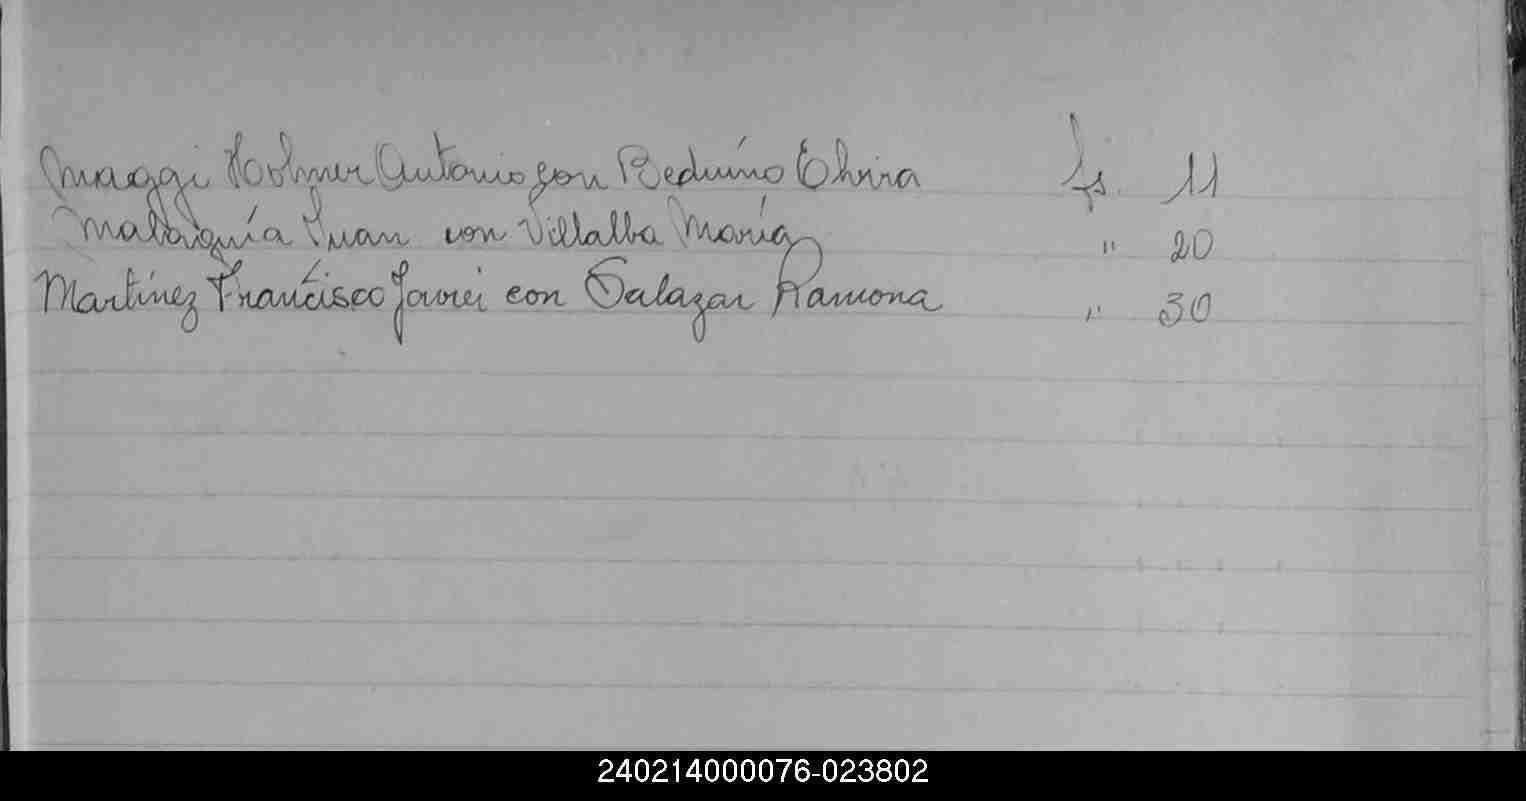 Maggi Holmer Antonio con Beduino Elvira fs. 11
Juan con Villalba María " 20
Martínez Francisco Javier con Salazar Ramona " 30
240214000076-023802